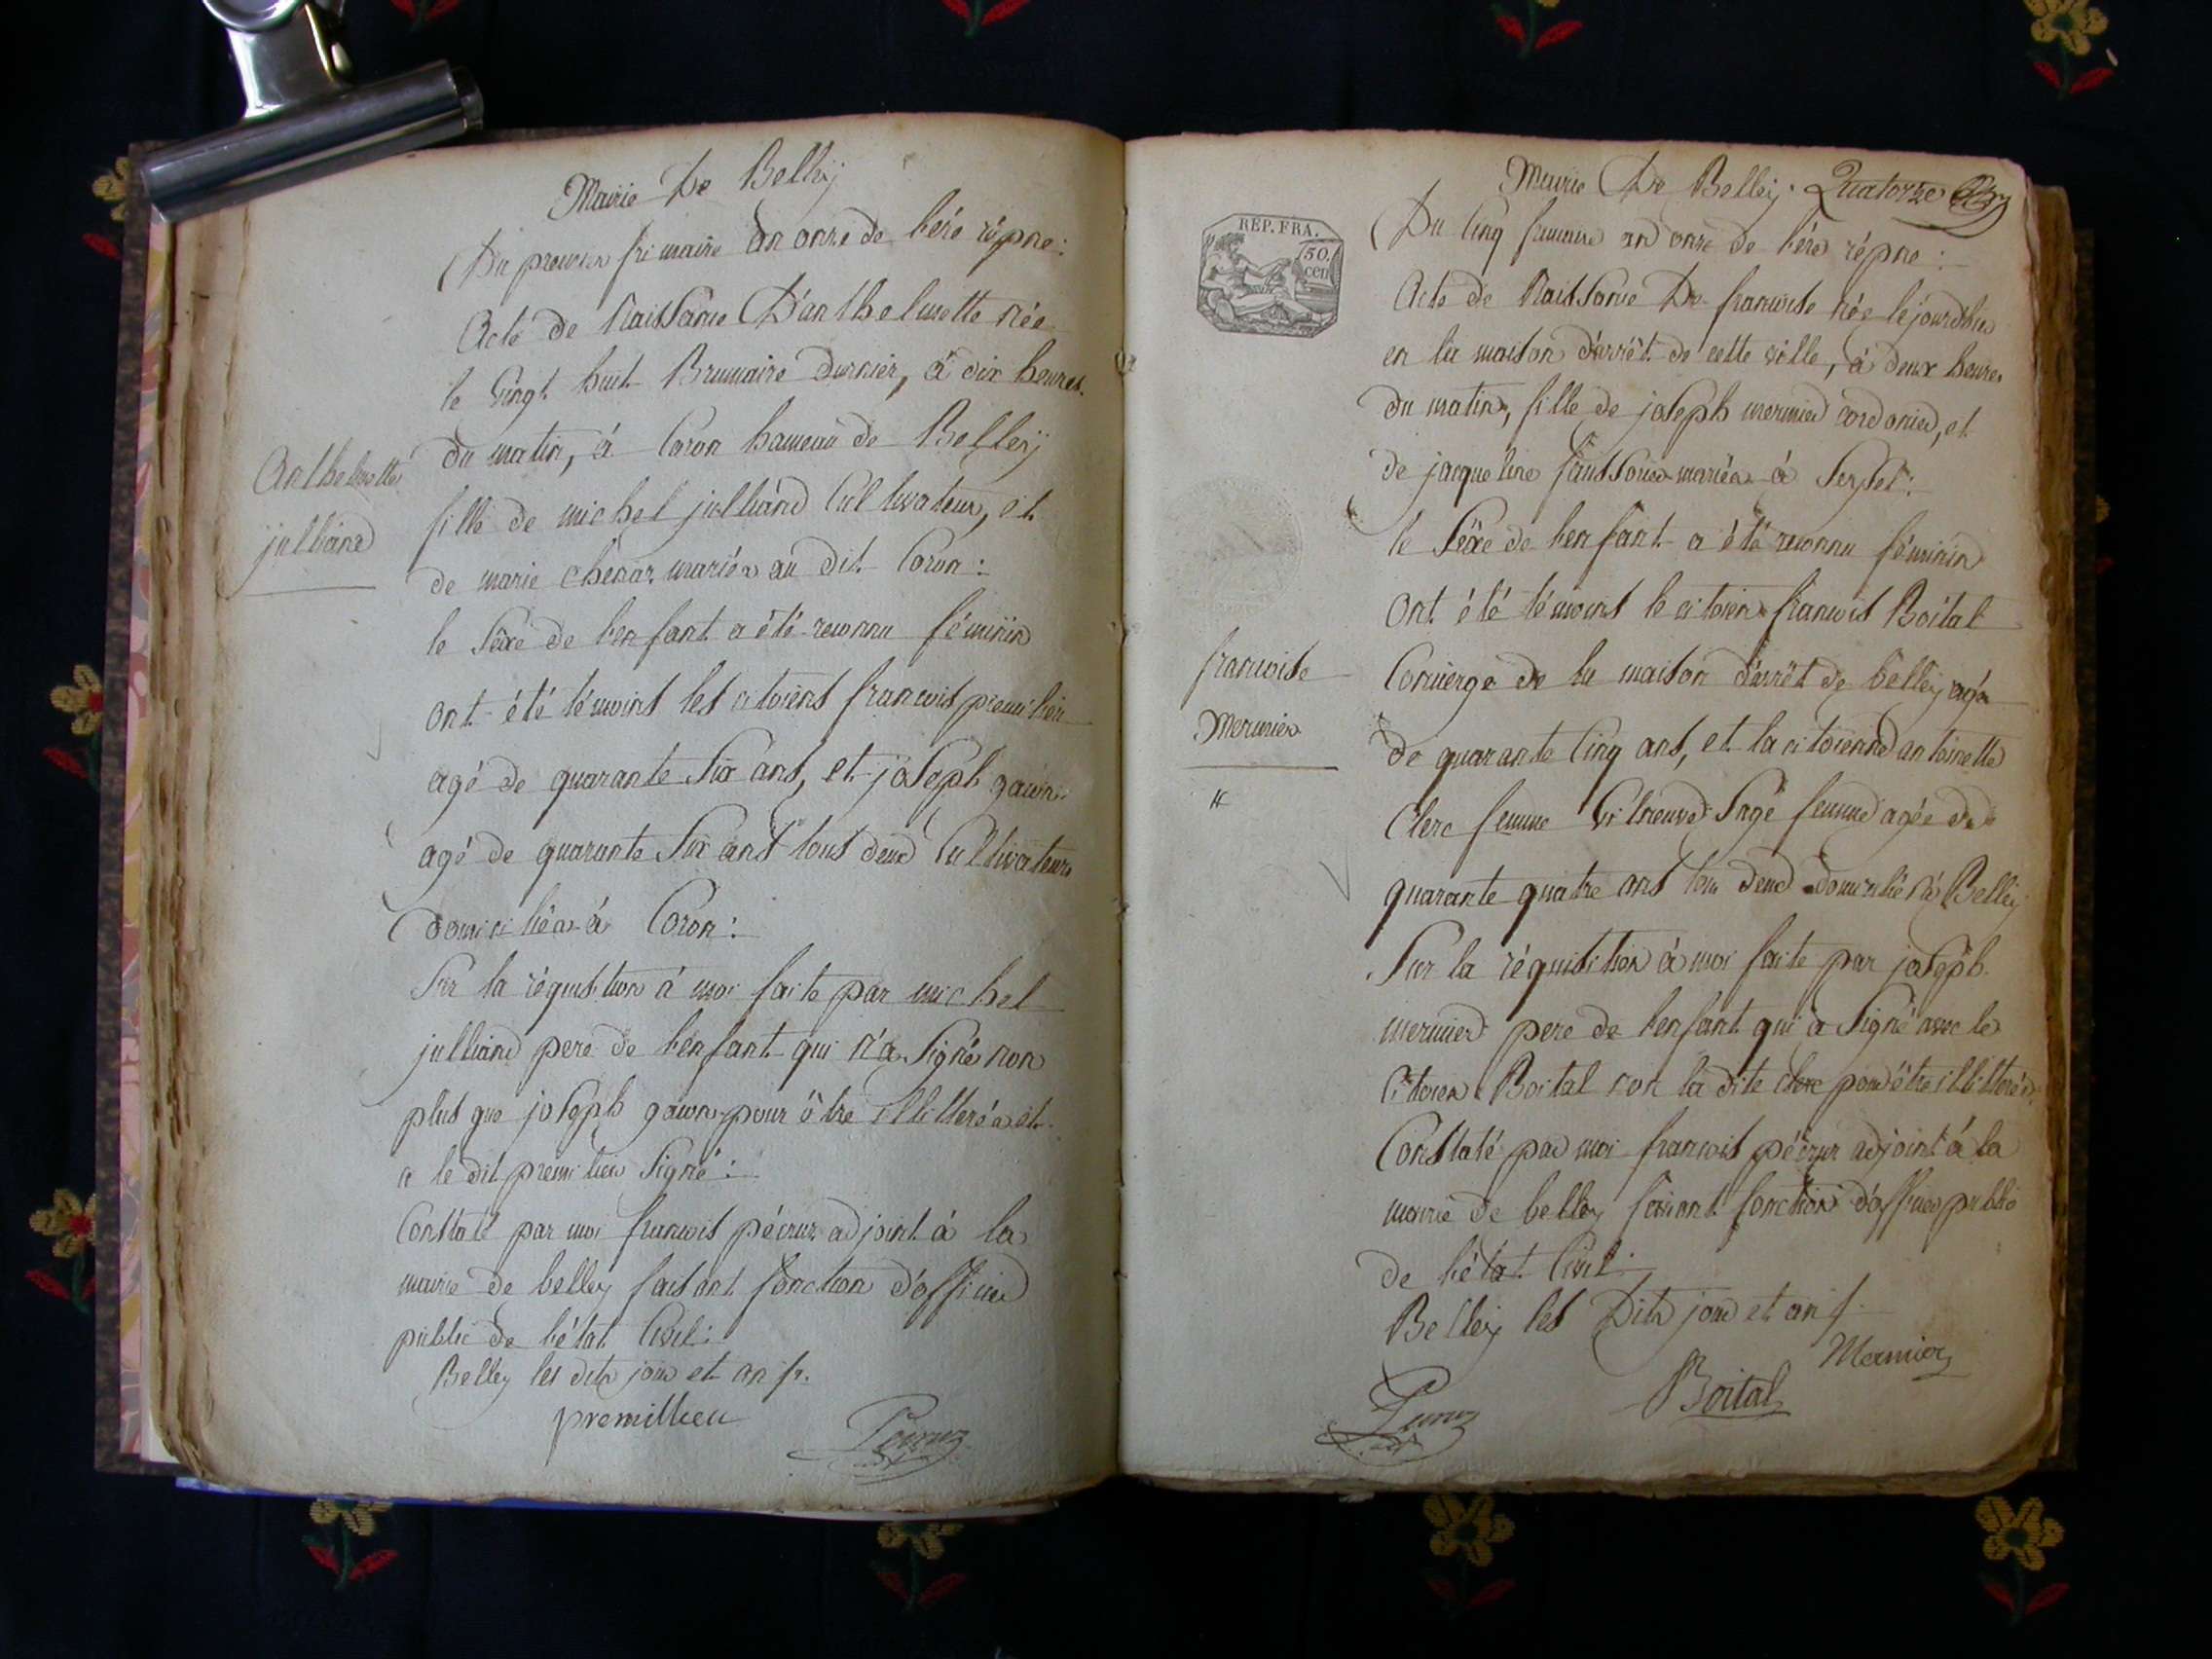 Mairie De Belleÿ
Du premier frimaire an onze de l'ére répne:
Acte de Naissance D'anthelmette née
le Vingt huit Brumaire dernier, à dix heures
du matin, à Coron hameau de Belleÿ
fille de michel julliand Cultivateur, et
de marie chenar mariés au dit Coron:
le Séxe de l'enfant a été reconnu féminin
ont été témoins les citoiens francois premilieu
agé de quarante Six ans, et joseph
agé de quarante Six ans tous deux Cultivateurs
domiciliés à Coron:
Sur la réquisition à moi faite par michel
julliand pere de l'enfant qui n'a Signé non
plus que joseph pour être illitterés et
a le dit premilieu Signé:
Constaté par moi francois pécruz adjoint à la
mairie de belley faisant fonction d'officier
public de l'état Civil:
Belley les dits jour et an
premillieu
Pécruz
Anthelmette
julliand
Mairie De Belleÿ. Quatorze
REP. FRA.
50.
cen
Du Cinq frimaire an onze de l'ére répne:
Acte de Naissance De francoise née cejourdhui
en la maison d'arrêt de cette ville, à deux heures
du matin, fille de joseph mermier cordonier, et
de jacqueline mariés à Seyssel:
le Séxe de l'enfant a été reconnu féminin
ont été témoins le citoien francois Boital
Concierge de la maison d'arrêt de belley agé
de quarante Cinq ans, et la citoienne antoinette
Clerc femme Sage femme agée de
quarante quatre ans tous deux domiciliés à Belley
Sur la réquisition à moi faite par joseph
mermier pere de l'enfant qui a Signé avec le
Citoien Boital non la dite clerc pour être illitterée
Constaté par moi francois pécruz adjoint à la
mairie de belley faisant fonction d'officier public
de l'état Civil:
Belley les Dits jour et an
Mermier
Boital
Pécruz
francoise
Mermier